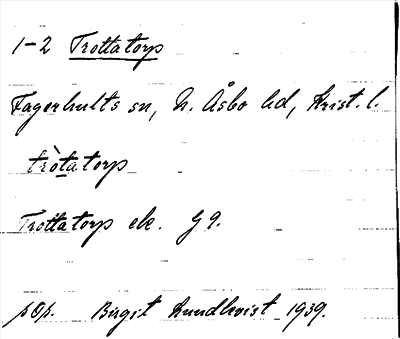 1-2 Trottatorp
Fagerhults sn, N. Åsbo hd, Krist. l.
tròtatorp
Trottatorp ek. G9.
pOp. Birgit Lundkvist 1939.